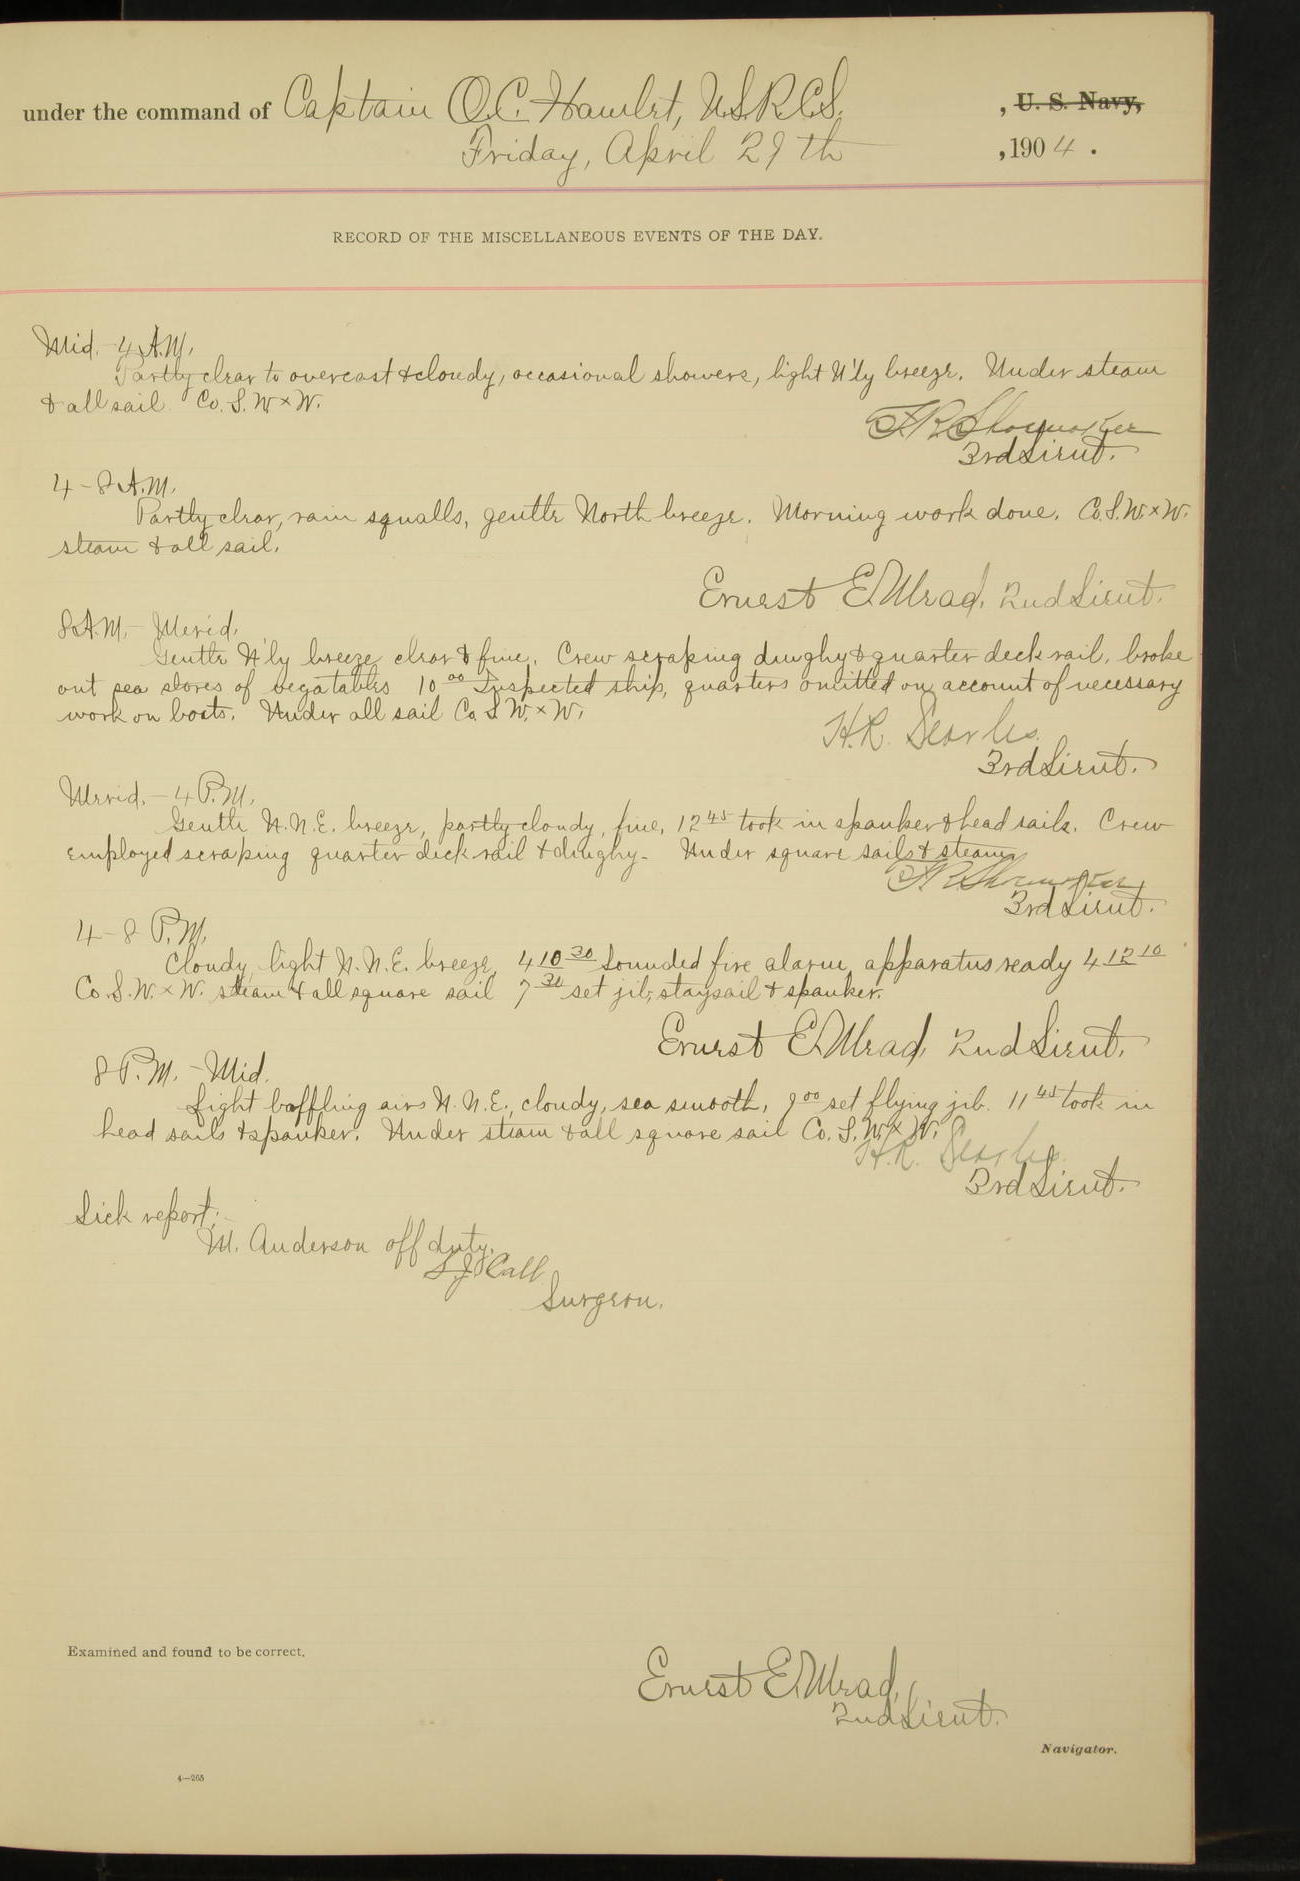 under the command of Captain O.C. Hamlet, U.S.R.C.S. , U. S. Navy,
Friday, April 29th , 1904.
RECORD OF THE MISCELLANEOUS EVENTS OF THE DAY.
Mid. - 4 A.M.
Partly clear to overcast & cloudy, occasional showers, light N'ly breeze. Under steam
& all sail. Co. S.W x W.
F.R. Shoemaker
3rd Lieut.
4 - 8 A.M.
Partly clear, rain squalls, gentle North breeze. Morning work done. Co. S.W. x W.
steam & all sail.
Ernest E. Mead, 2nd Lieut.
8 A.M. - Merid.
Gentle N'ly breeze clear & fine. Crew scraping dinghy & quarter deck rail, broke
out sea stores of vegatables 10 00 Inspected ship, quarters omitted on account of necessary
work on boats. Under all sail Co. S.W. x W.
H.R. Searles.
3rd Lieut.
Merid. - 4 P.M.
Gentle N.N.E. breeze, partly cloudy, fine, 12 45 took in spanker & head sails. Crew
employed scraping quarter deck rail & dinghy - Under square sails & steam
F.R. Shoemaker
3rd Lieut.
4 - 8 P.M.
Cloudy, light N.N.E. breeze, 4 10 30 Sounded fire alarm, apparatus ready 4 12 10
Co. S.W. x W. steam & all square sail 7 30 set jib, staysail & spanker.
Ernest E. Mead, 2nd Lieut.
8 P.M. - Mid.
Light baffling airs N.N.E., cloudy, sea smooth, 9 00 set flying jib. 11 45 took in
head sails & spanker. Under steam & all square sail Co. S.W. x W.
H.R. Searles.
3rd Lieut.
Sick report: -
M. Anderson off duty.
S.J. Call
Surgeon.
Examined and found to be correct.
Ernest E. Mead,
2nd Lieut.
Navigator.
4—265